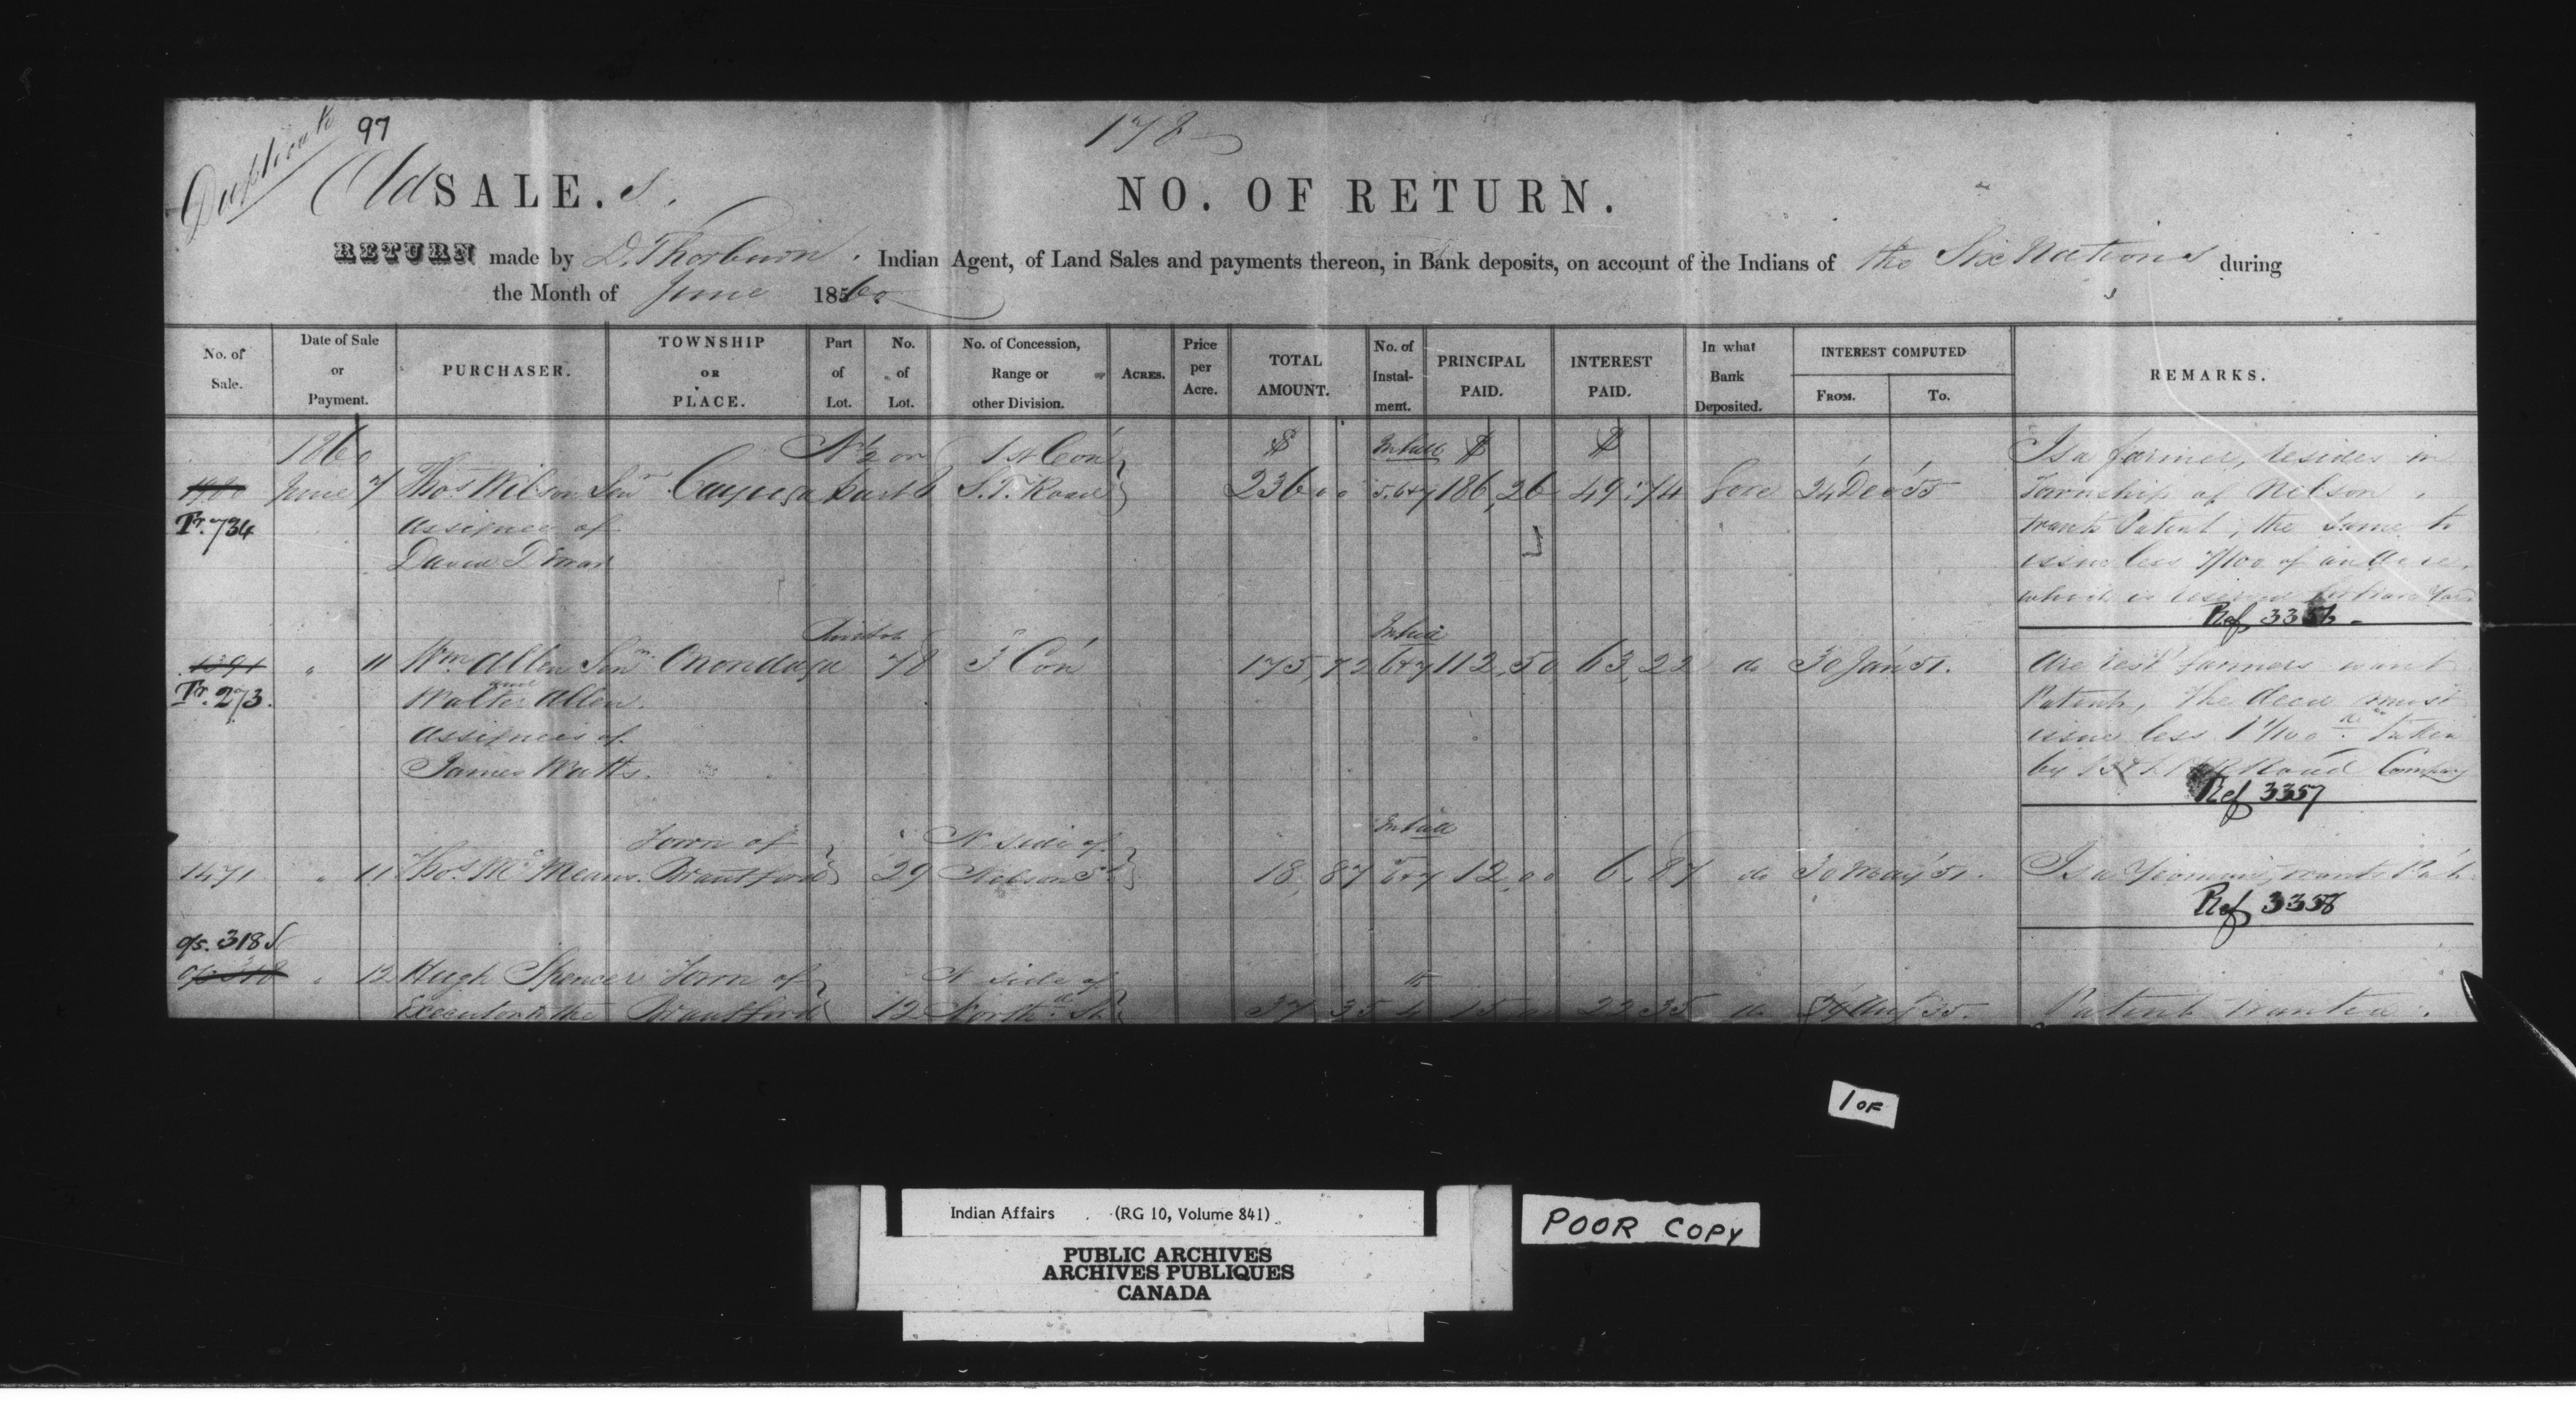 Duplicate
97
178
Old SALE.s.
NO. OF RETURN.
RETURN made by D. Thorburn. Indian Agent, of Land Sales and payments thereon, in Bank deposits, on account of the Indians of the Six Nations during
the Month of June 1860
No. of Sale. Date of Sale or Payment. PURCHASER. TOWNSHIP OR PLACE. Part of Lot. No. of Lot. No. of Concession, Range or other Division. ACRES. Price per Acre. TOTAL AMOUNT. No. of Instal-ment. PRINCIPAL PAID. INTEREST PAID. In what Bank Deposited. INTEREST COMPUTED FROM. To. REMARKS.
1860 N 1/2 on 1st Con $ In full $ $ Is a farmer, resides in
June 7 Thos. Wilson Senr Cayuga 8 S.T. Road 236 00 5.6+7 186,26 49,74 Gore 24 Dec 55 Township of Nelson,
Tr. 734 assignee of wants Patent, the same to
David issue less 7/100 of an Acre
which is reserved
Ref 3356
In full
1391 " 11 Wm Allen Senr Onondaga 78 3 Con 175,72 6+7 112,50 63,22 do 30 Jan 51. are resp farmers want
Tr. 273. and Walter Allen. Patent, the deed must
assignees of issue less 1 1/100 ac taken
James Watts. by Road Company
Ref 3357
Town of N side of In full
1471 " 11 Thos. McMeans. Brantford 29 Nelson St 18,87 6+7 12,00 6,87 do 30 May 51. Is a Yeoman, wants Pat.
Ref 3358
o/s. 318
o/s 318 " 12 Hugh Spencer Town of N side of
Executor to the Brantford 12 North St 37 35 4th 15 00 22 35 do Aug 35. Patent wanted.
1 OF
Indian Affairs (RG 10, Volume 841)
PUBLIC ARCHIVES
ARCHIVES PUBLIQUES
CANADA
POOR COPY